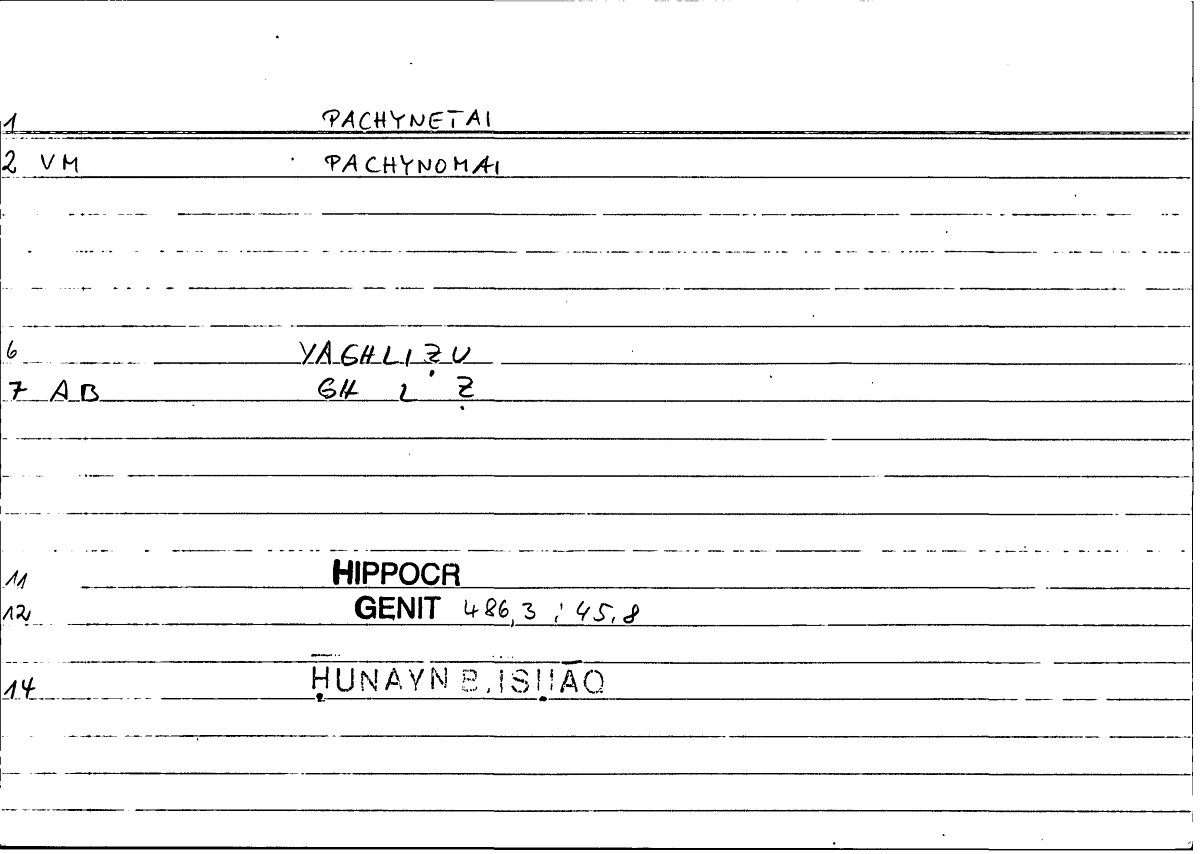 1 PACHYNETAI
2 VM PACHYNOMAI
6 YAGHLIẒU
7 AB GH L Ẓ
11 HIPPOCR
12 GENIT 486,3 ; 45,8
14 ḤUNAYN B. ISḤĀQ